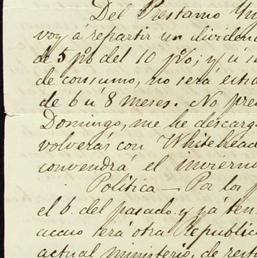 Del Prestamo Yn
voy á repartir un dividend
de 5 p% del 10 p%; y ú s
de consumo, no será est
de 6 ú 8 meses. No pre
Domingo, me he descarg
volverás con Whitehead
convendrá el inviern
Politica — Por los p
el 6. del pasado y yá ten
acaso será otra Republic
actual ministerio, de rest